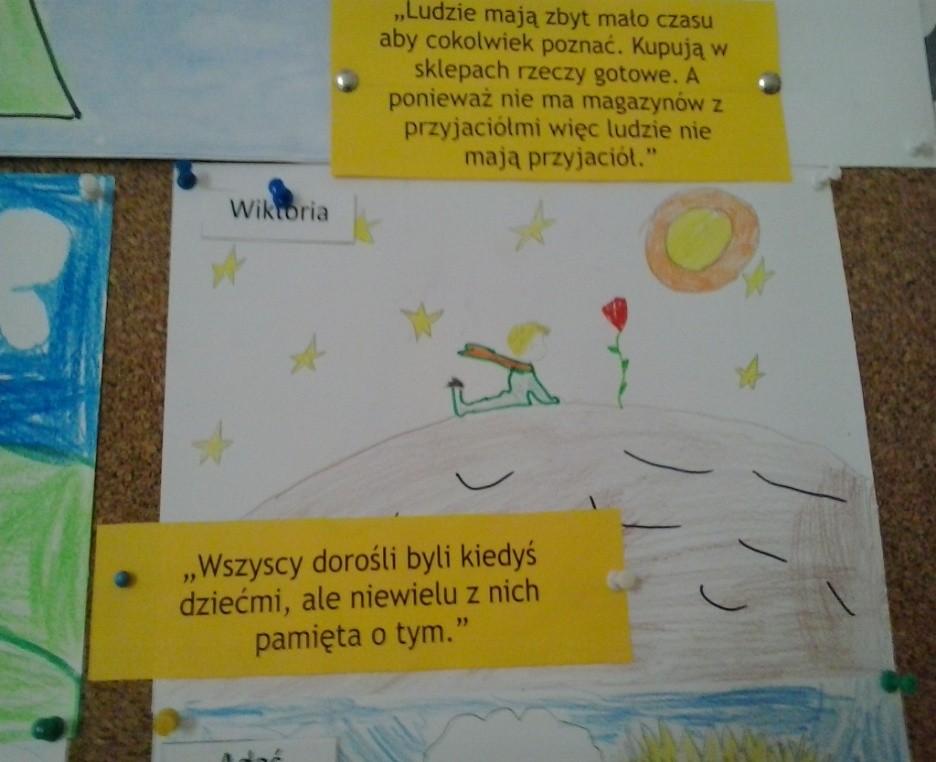 „Ludzie mają zbyt mało czasu
aby cokolwiek poznać. Kupują w
sklepach rzeczy gotowe. A
ponieważ nie ma magazynów z
przyjaciółmi więc ludzie nie
mają przyjaciół.”
Wiktoria
„Wszyscy dorośli byli kiedyś
dziećmi, ale niewielu z nich
pamięta o tym.”